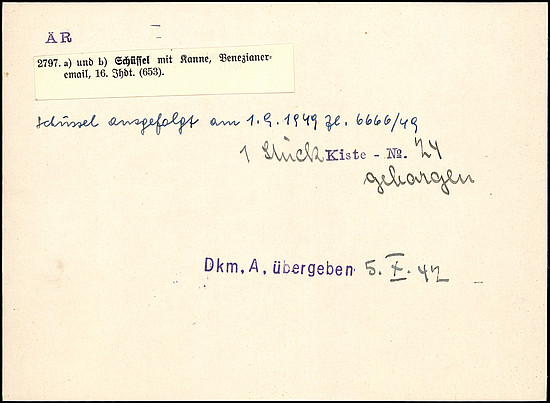 ÄR
2797. a) und b) Schüssel mit Kanne, Venezianer-
email, 16. Jhdt. (653).
Schüssel ausgefolgt am 1.9.1949 Zl. 6666/49
1 Stück Kiste - No. 24
geborgen
Dkm. A. übergeben 5. X. 42